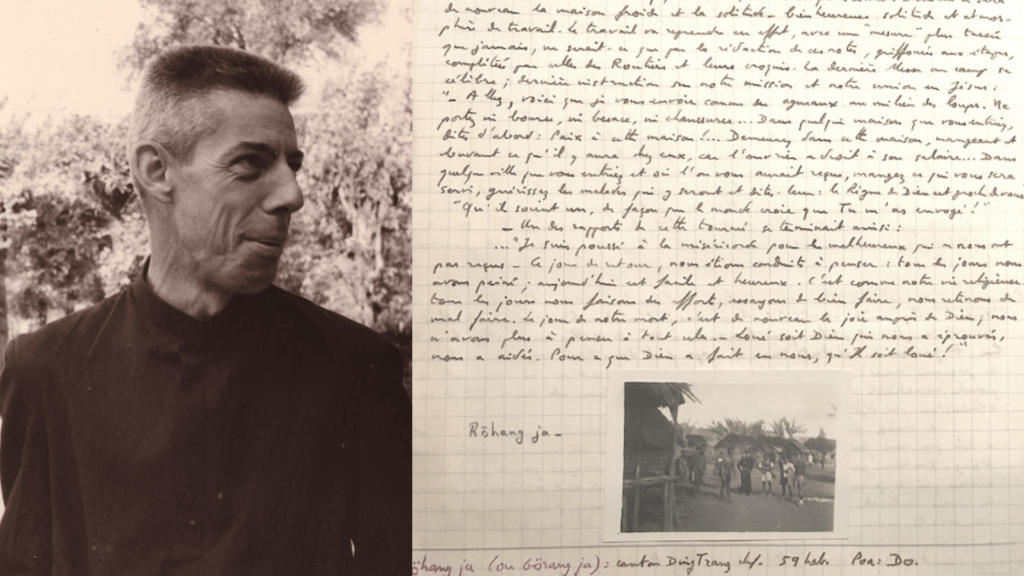 de nouveau la maison froide et la solitude - bienheureuse solitude et atmos-
phère de travail. Le travail va reprendre en effet, avec une "mesure" plus tassée
que jamais, ne serait-ce que par la rédaction de ces notes, griffonnées aux étapes,
complétées par celles des Routiers et leurs croquis. La dernière Messe au camp se
célèbre, dernière instruction sur notre mission et notre union en Jésus :
"- Allez, voici que je vous envoie comme des agneaux au milieu des loups. Ne
portez ni bourse, ni besace, ni chaussures... Dans quelque maison que vous entriez,
dites d'abord : Paix à cette maison !... Demeurez dans cette maison, mangeant et
buvant ce qu'il y aura chez eux, car l'ouvrier a droit à son salaire... Dans
quelque ville que vous entriez et où l'on vous aurait reçu, mangez ce qui vous sera
servi, guérissez les malades qui y seront et dites-leur : le Règne de Dieu est proche de vous
"Qu'ils soient un, de façon que le monde croie que Tu m'as envoyé !"
- Un des rapports de cette tournée se terminait ainsi :
..."Je suis poussé à la miséricorde pour les malheureux qui ne nous ont
pas reçus - Ce jour de retour, nous étions conduits à penser : tous les jours nous
avons peiné ; aujourd'hui est facile et heureux. C'est comme notre vie religieuse
tous les jours nous faisons des efforts, essayons de bien faire, nous retenons de
mal faire. Le jour de notre mort, c'est de nouveau la joie auprès de Dieu, nous
n'avons plus à penser à tout cela - Loué soit Dieu qui nous a éprouvés,
nous a aidés. Pour ce que Dieu a fait en nous, qu'Il soit loué !"
Röhang ja -
öhang ja (ou Görang ja) : canton DingTrang 59 hab. Poa: Do.